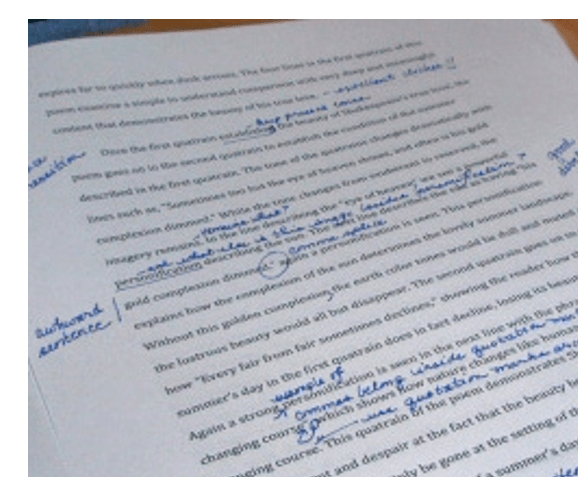 expires far to quickly when dusk arrives. The four lines in the first quatrain of this
poem examine a simple to understand comparison with very deep and meaningful
content that demonstrates the beauty of his true love. - excellent
keep present tense
Once the first quatrain establishing the beauty of Shakespeare's true love, the
poem goes on in the second quatrain to establish the condition of the summer
described in the first quatrain. The tone of the quatrains changes dramatically with
lines such as, "Sometimes too hot the eye of heaven shines, and often is his gold
complexion dimmed." While the tone changes from exuberant to reserved, the
imagery remains. In the line describing the "eye of heaven" we see a powerful
what else is this image besides personification?
personification describing the sun. The line describes the sun as having "his
comma splice
gold complexion dimmed," again a personification is seen. This personification
explains how the complexion of the sun determines the lovely summer landscape.
awkward
sentence
Without this golden complexion, the earth color tones would be dull and muted
the lustrous beauty would all but disappear. The second quatrain goes on to
how "Every fair from fair sometimes declines," showing the reader how the
summer's day in the first quatrain does in fact decline, losing its beauty
example of
Again a strong personification is seen in the next line with the phrase
commas belong inside quotation
changing course", which shows how nature changes like human
use quotation marks
changing course. This quatrain of the poem demonstrates
and despair at the fact that the beauty
be gone at the setting of the
of a summer's day